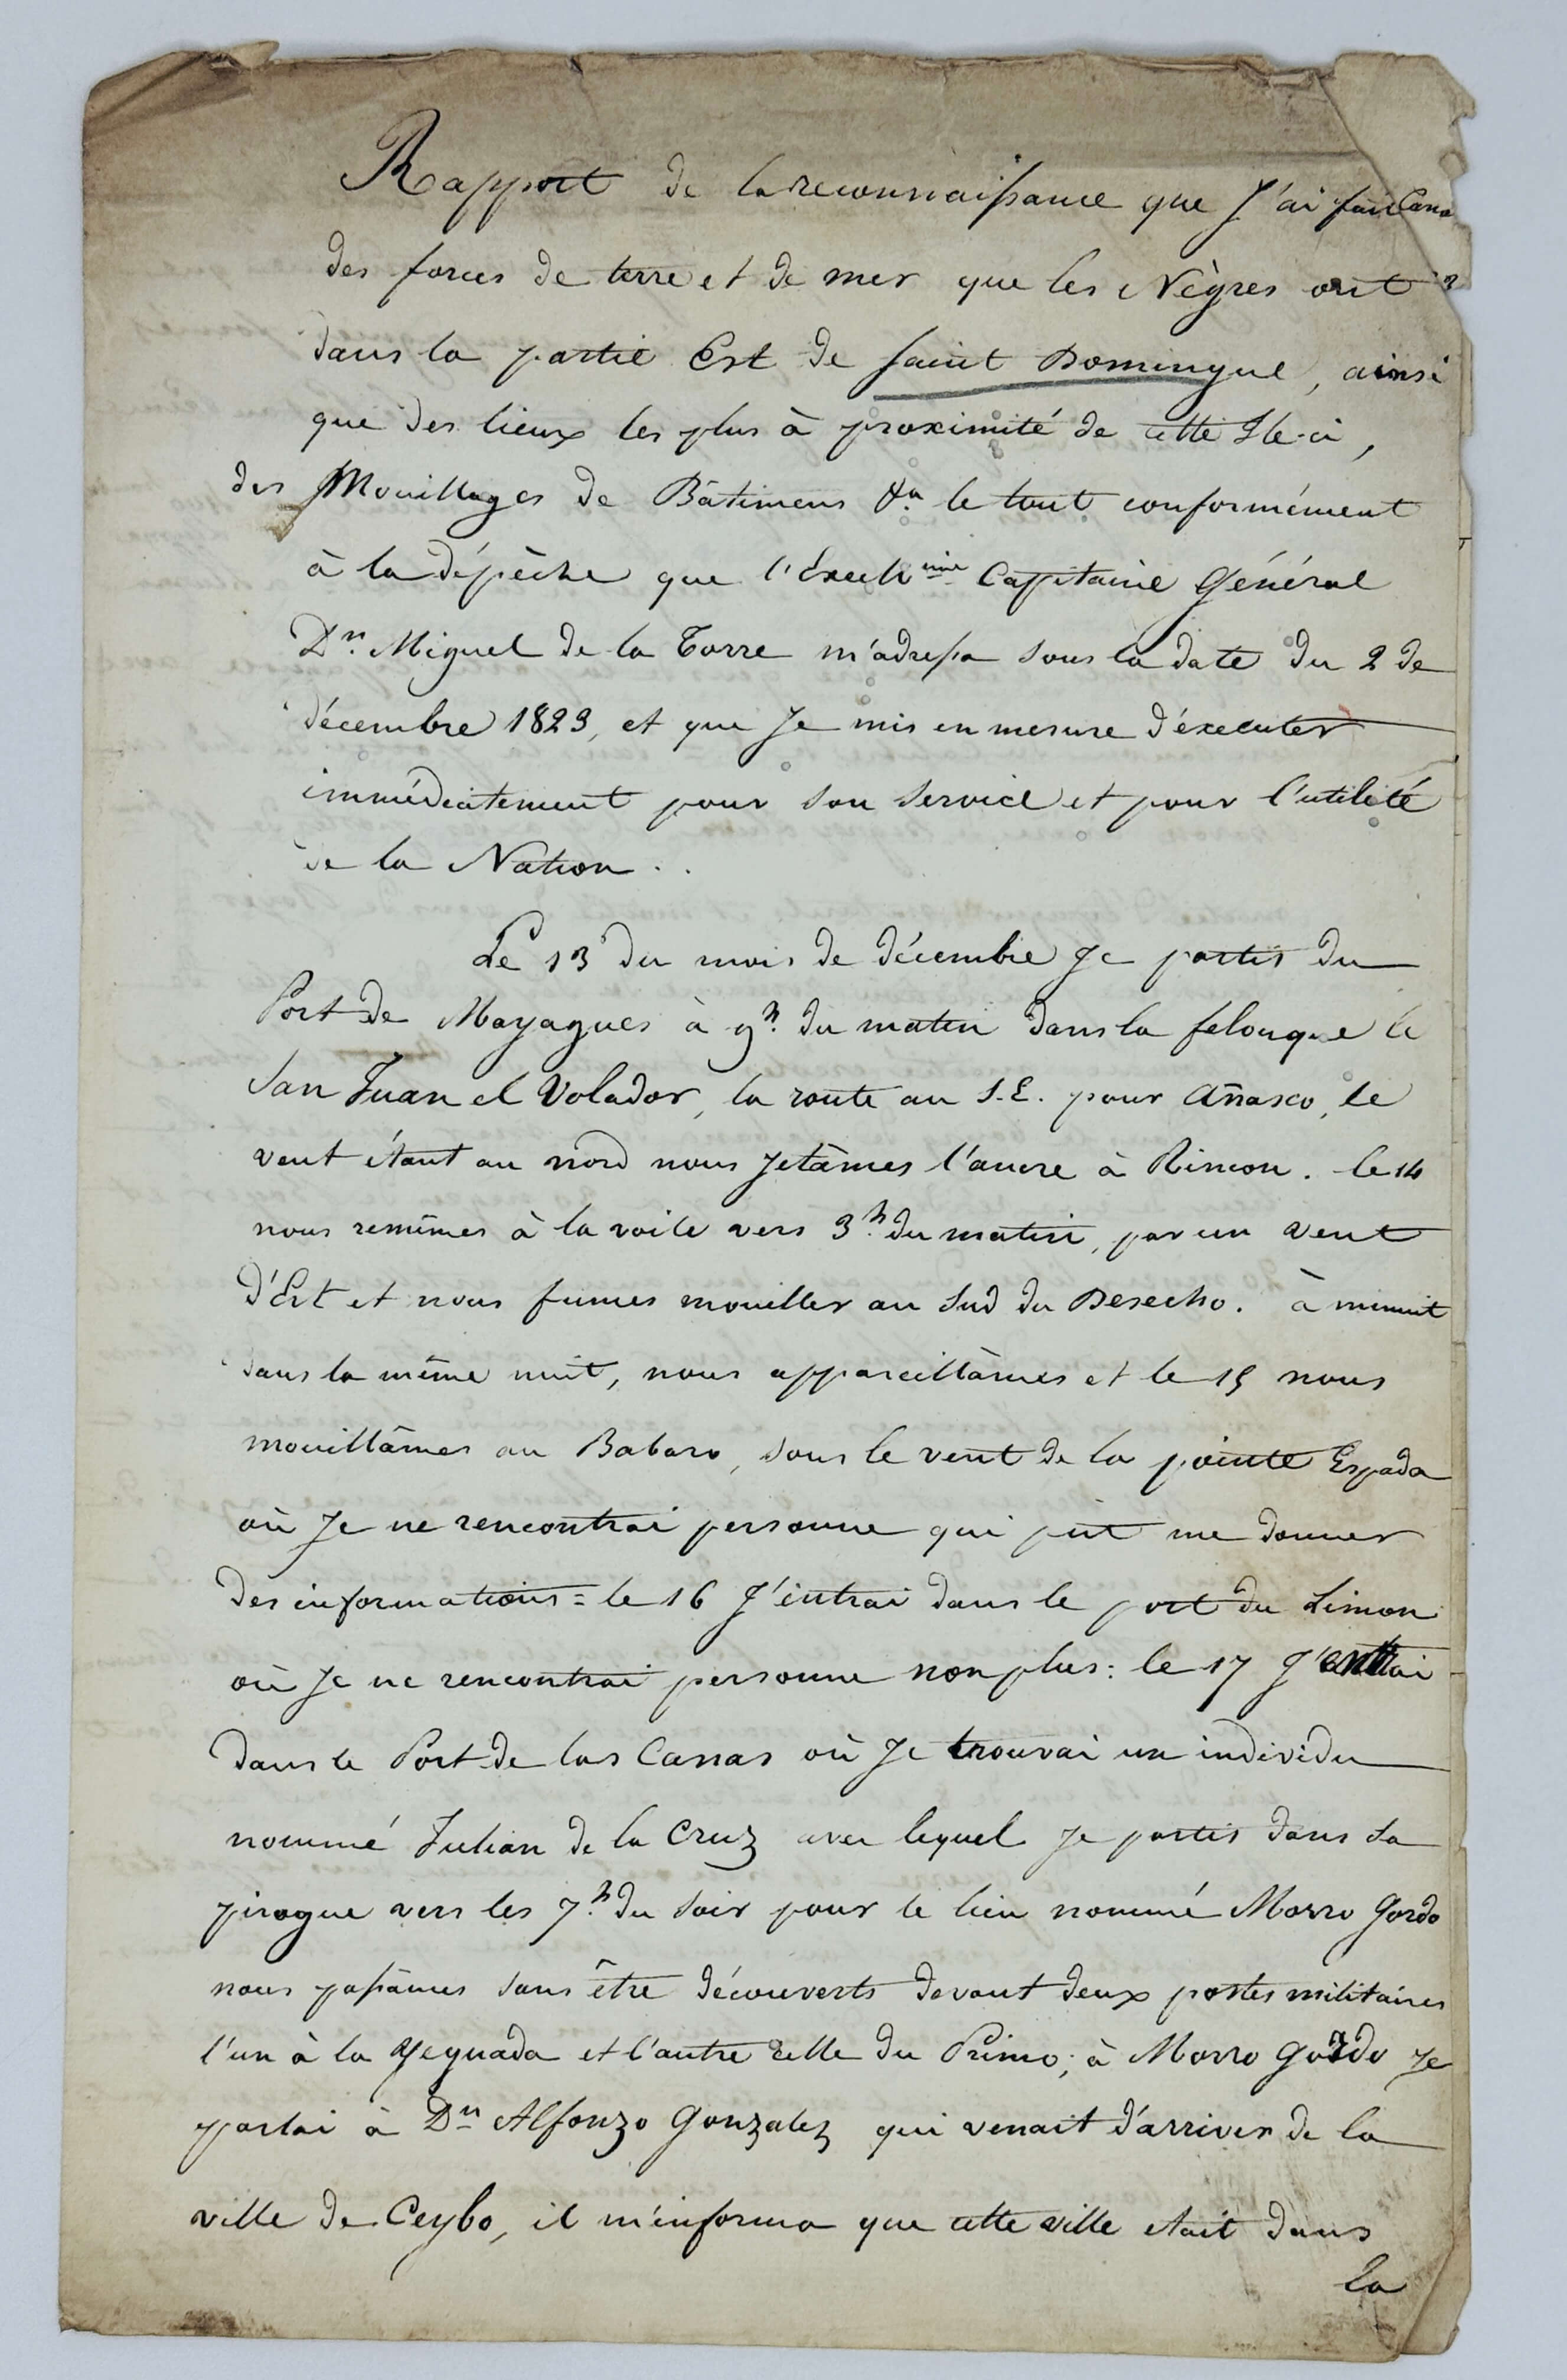 Rapport de la reconnaissance que J'ai fait
des forces de terre et de mer que les Nègres ont
dans la partie Est de saint Domingue, ainsi
que des lieux les plus à proximité de cette Ile-ci,
des Mouillages de Bâtimens &a. le tout conformément
à la dépèche que l'Excell.me Capitaine Général
Dn. Miguel de la Torre m'adressa sous la date du 2 de
décembre 1823, et que Je mis en mesure d'éxecuter
immédiatement pour son service et pour l'utilité
de la Nation..
Le 13 du mois de décembre Je partis du
Port de Mayagues à 9h. du matin dans la felouque le
San Juan el Volador, la route au S.E. pour Añasco, le
vent étant au nord nous Jetâmes l'ancre à Rincon. le 14
nous remîmes à la voile vers 3h. du matin, par un vent
d'Est et nous fumes mouiller au Sud du Desecho. à minuit
dans la même nuit, nous appareillâmes et le 15 nous
mouillâmes au Babaro, sous le vent de la pointe Espada
où Je ne rencontrai personne qui put me donner
des informations = le 16 J'entrai dans le port du Limon
où Je ne rencontrai personne non plus: le 17 J'entrai
dans le Port de las Canas où Je trouvai un individu
nommé Julian de la Cruz avec lequel Je partis dans sa
pirogue vers les 7h. du soir pour le lieu nommé Morro Gordo
nous passâmes sans être découverts devant deux postes militaires
l'un à la Yeguada et l'autre celle du Primo; à Morro Gordo Je
parlai à Dn Alfonzo Gonzalez qui venait d'arriver de la
ville de Ceybo, il m'informa que cette ville etait dans
la